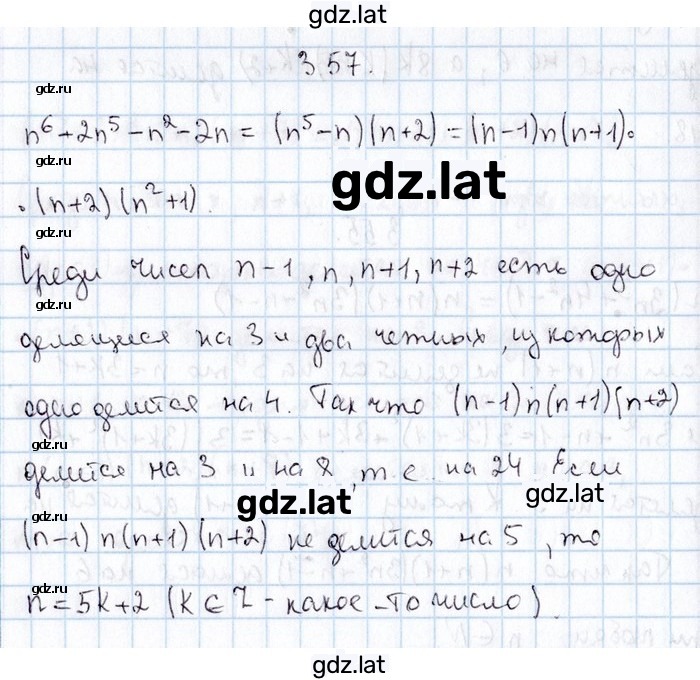 gdz.lat
3.57.
gdz.ru
n⁶+2n⁵-n²-2n = (n⁵-n)(n+2) = (n-1)n(n+1)·
gdz.lat
· (n+2)(n²+1).
gdz.ru
Среди чисел n-1, n, n+1, n+2 есть одно
gdz.ru
делящиеся на 3 и два четных, из которых
gdz.ru
одно делится на 4. Так что (n-1)n(n+1)(n+2)
gdz.ru
делится на 3 и на 8, т.е. на 24. Если
gdz.lat gdz.lat
gdz.ru
(n-1)n(n+1)(n+2) не делится на 5, то
gdz.ru
n=5k+2 (k∈Z - какое-то число).
gdz.lat